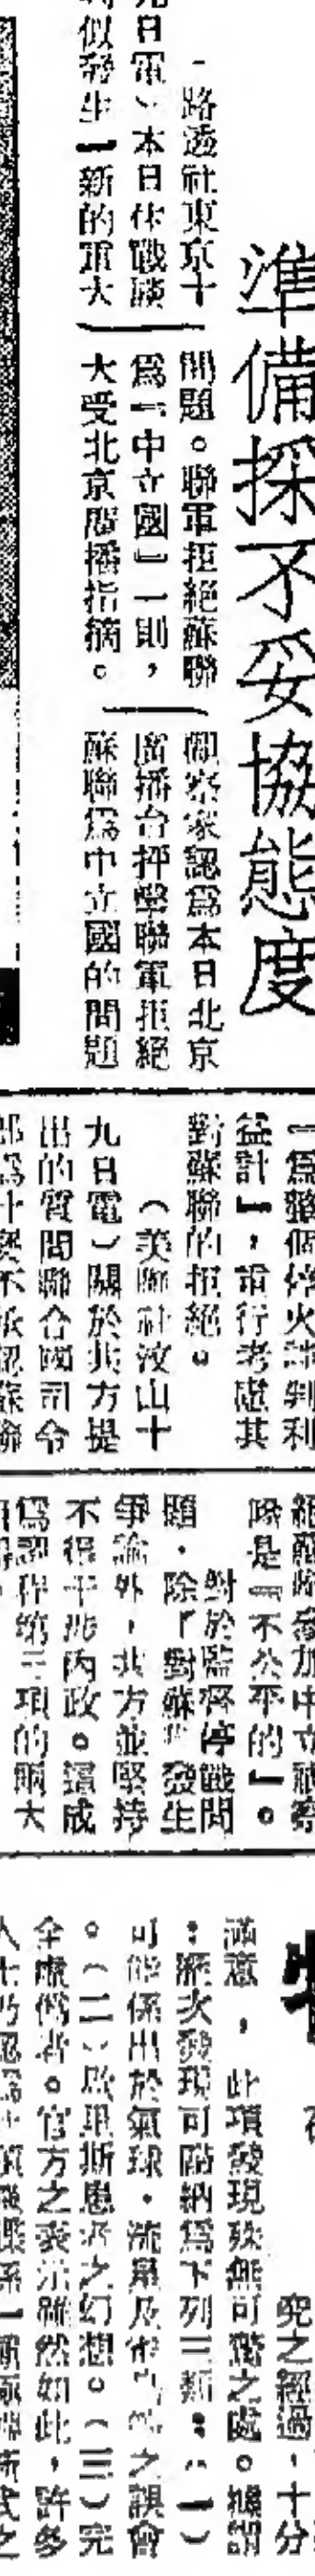 準備採不妥協態度
路透社東京十
九日電）本日休戰談
判似發生一新的重大
問題。聯軍拒絕蘇聯
爲『中立國』一則，
大受北京廣播指摘。
觀察家認爲本日北京
廣播台抨擊聯軍拒絕
蘇聯爲中立國的問題
一爲整個停火談判利
益計』，重行考慮其
對蘇聯的拒絕。
（美聯社汶山十
九日電）關於共方提
出的質問聯合國司令
部爲什麼不承認蘇聯
絕蘇聯參加中立視察
隊是『不公平的』。
對於監督停戰問
題，除「對蘇」發生
爭論外，共方並堅持
不得干涉內政。這成
爲認作第三項的兩大
究之經過，十分
滿意，此項發現殊無可驚之處。據謂
：歷次發現可歸納爲下列三類：（一）
可能係出於氣球，流星及之誤會
。（二）歇里斯患者之幻想。（三）完
全虛僞者。官方之表示雖然如此，許多
人士仍認爲